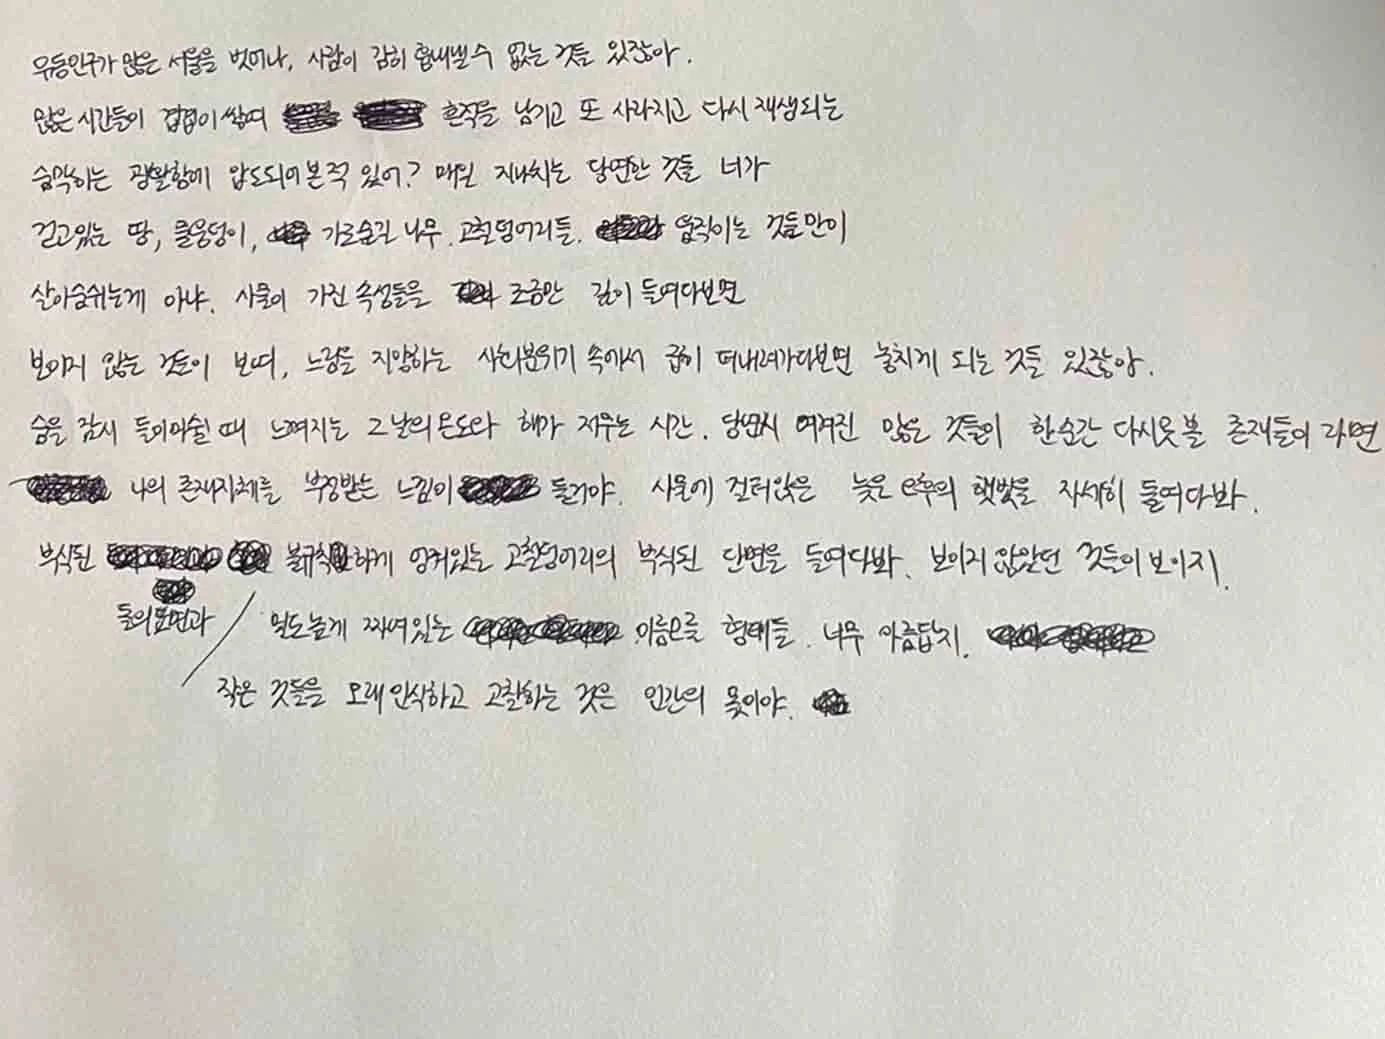 유동인구가 많은 서울을 벗어나, 사람이 감히 흉내낼 수 없는 것들 있잖아.
많은 시간들이 겹겹이 쌓여 흔적을 남기고 또 사라지고 다시 재생되는
숨막히는 광활함에 압도되어본 적 있어? 매일 지나치는 당연한 것들 너가
걷고있는 땅, 물웅덩이, 가로숲길 나무. 고철덩어리들. 움직이는 것들만이
살아숨쉬는게 아냐. 사물이 가진 속성들을 조금만 깊이 들여다보면
보이지 않는 것들이 보여, 느림을 지양하는 사회분위기 속에서 급히 떠내려가다보면 놓치게 되는 것들 있잖아.
숨을 잠시 들이마쉴 때 느껴지는 그날의 온도와 해가 저무는 시간. 당연시 여겨진 많은 것들이 한순간 다시 못 볼 존재들이라면
나의 존재자체를 부정받는 느낌이 들거야. 사물에 걸터앉은 늦은 오후의 햇빛을 자세히 들여다봐.
부식된 불규칙하게 엉켜있는 고철덩어리의 부식된 단면을 들여다봐. 보이지 않았던 것들이 보이지.
돌의 표면과 / 밀도높게 짜여있는 이름모를 형태들. 너무 아름답지.
작은 것들을 오래 인식하고 고찰하는 것은 인간의 몫이야.